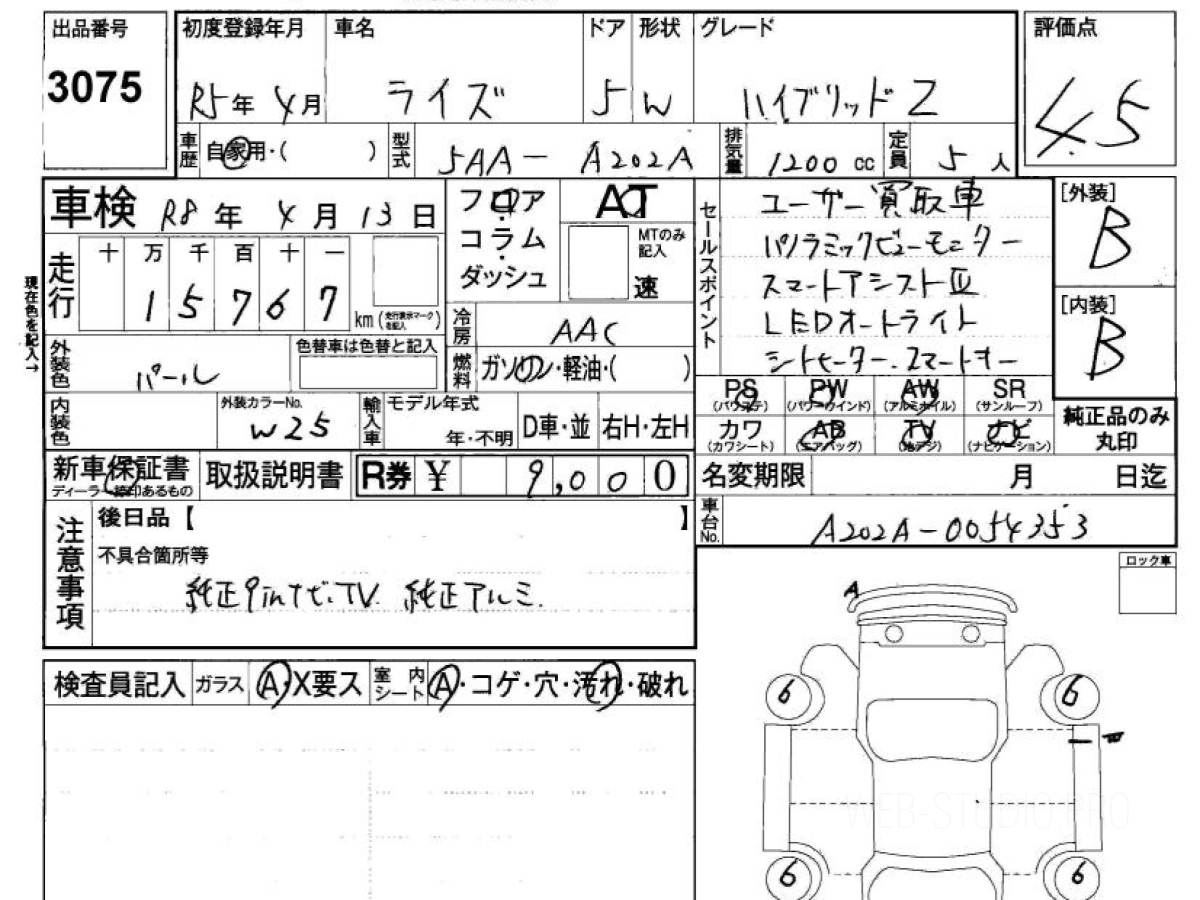 出品番号 初度登録年月 車名 ドア 形状 グレード 評価点
3075 R5年 4月 ライズ 5 W ハイブリッド Z 4.5
車歴 自家用・( ) 型式 5AA- A202A 排気量 1200 cc 定員 5 人
車検 R8 年 4 月 13 日 フロア AT ユーザー買取車 [外装]
コラム MTのみ記入 パノラミックビューモニター B
走行 十 万 千 百 十 一 ダッシュ 速 セールスポイント スマートアシストⅢ
現在色を記入→ 1 5 7 6 7 km (走行表示マークを記入) 冷房 AAC LEDオートライト [内装]
シートヒーター.スマートキー B
外装色 パール 色替車は色替と記入 燃料 ガソリン・軽油・( )
PS (パワステ) PW (パワーウインド) AW (アルミホイル) SR (サンルーフ)
内装色 外装カラーNo. W25 輸入車 モデル年式 年・不明 D車・並 右H・左H
カワ (カワシート) AB (エアバッグ) TV (地デジ) ナビ (ナビゲーション) 純正品のみ丸印
新車保証書 ディーラー捺印あるもの 取扱説明書 R券 ¥ 9,000 名変期限 月 日迄
注意事項 後日品【 】 車台No. A202A-0054353
不具合箇所等
純正9inナビ.TV. 純正アルミ. ロック車
A
検査員記入 ガラス A・X要ス 室内シート A・コゲ・穴・汚れ・破れ
6 6
WEB-STUDIO.PRO
6 6